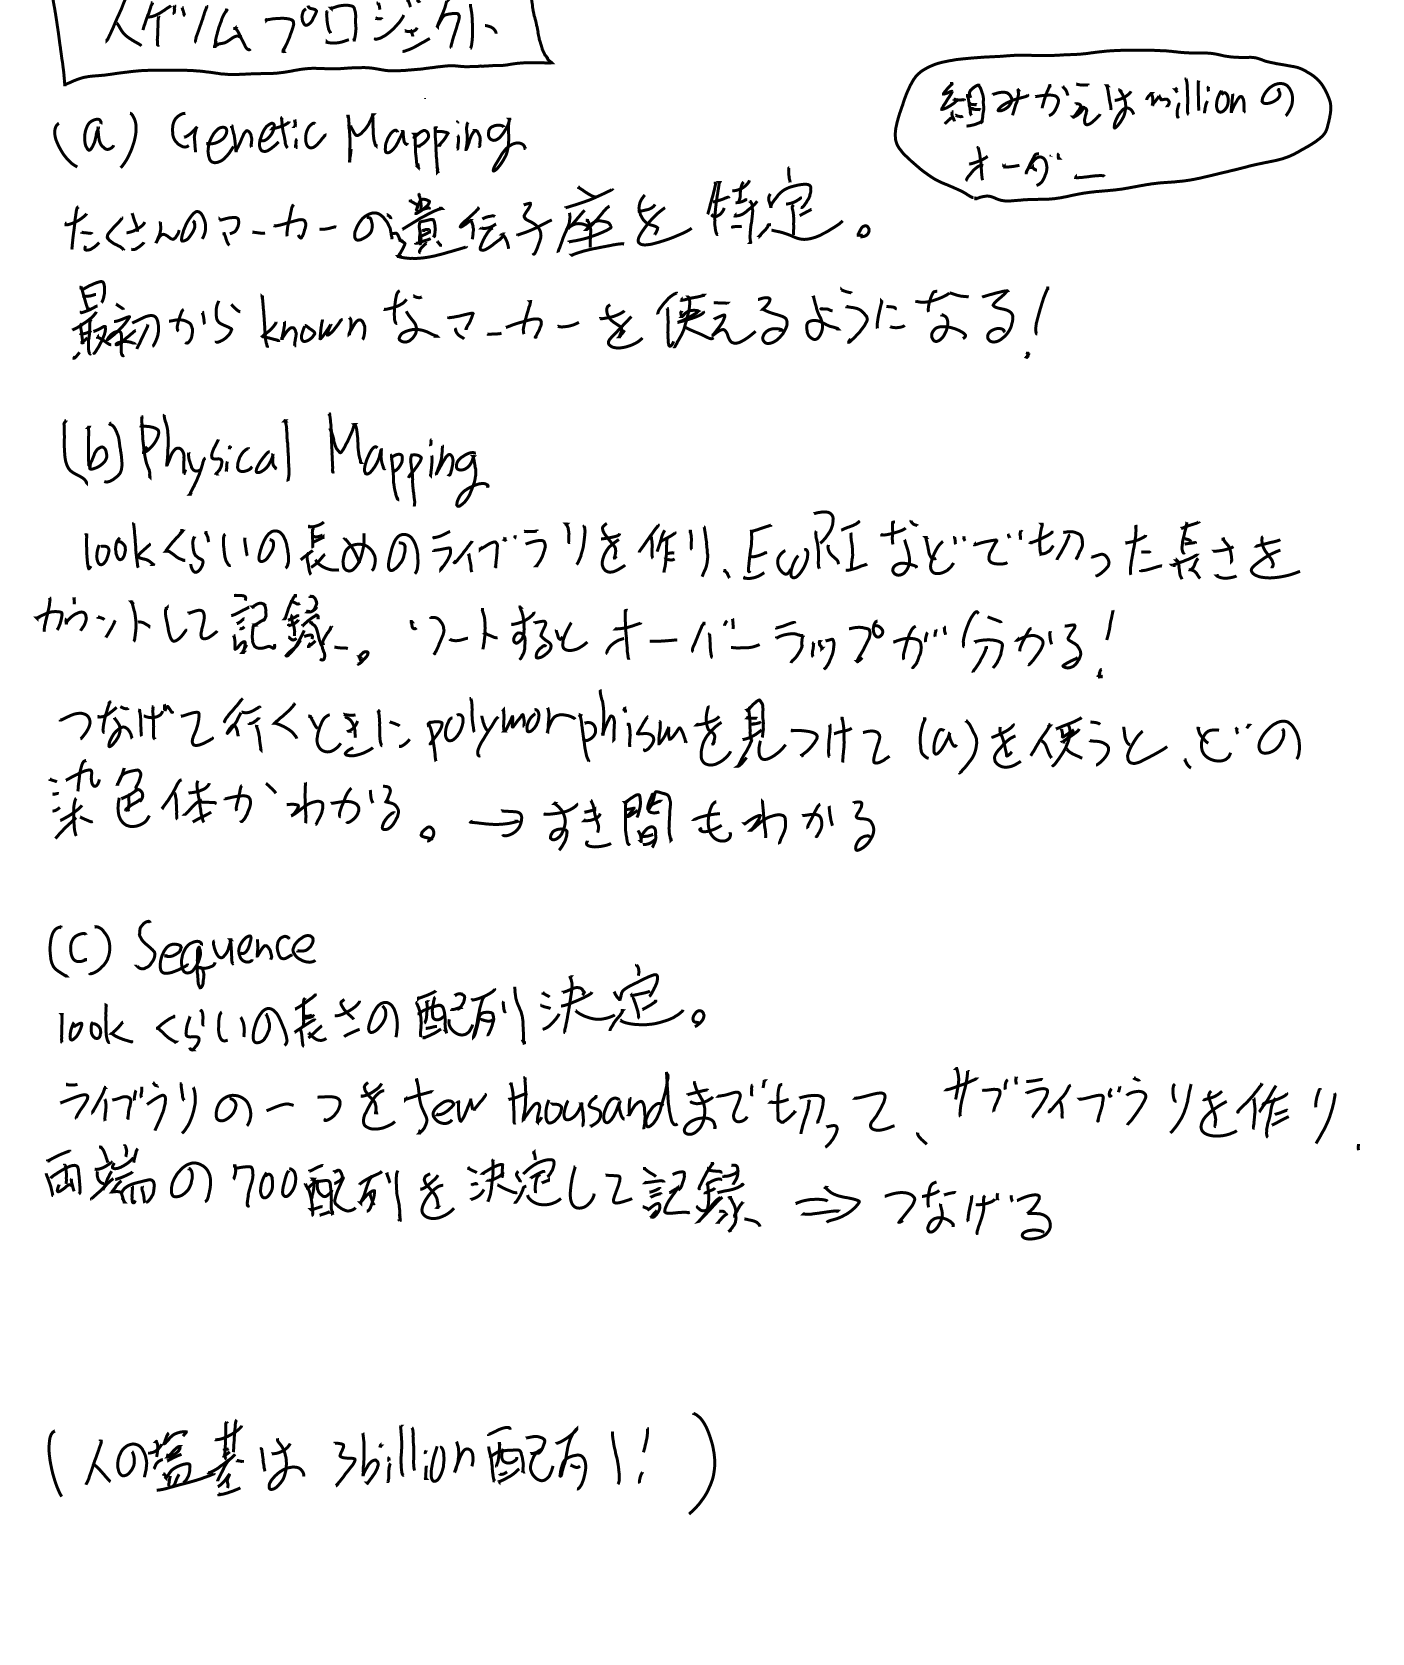 人ゲノムプロジェクト
(a) Genetic Mapping
組みかえはmillionの
オーダー
たくさんのマーカーの遺伝子座を特定。
最初からknownなマーカーを使えるようになる!
(b) Physical Mapping
100kくらいの長めのライブラリを作り、EcoRIなどで切った長さを
カウントして記録。ソートするとオーバーラップが分かる!
つなげて行くときにpolymorphismを見つけて(a)を使うと、どの
染色体かわかる。→すき間もわかる
(c) Sequence
100kくらいの長さの配列決定。
ライブラリの一つをfew thousandまで切って、サブライブラリを作り、
両端の700配列を決定して記録、⇒つなげる
(人の塩基は3billion配列!)